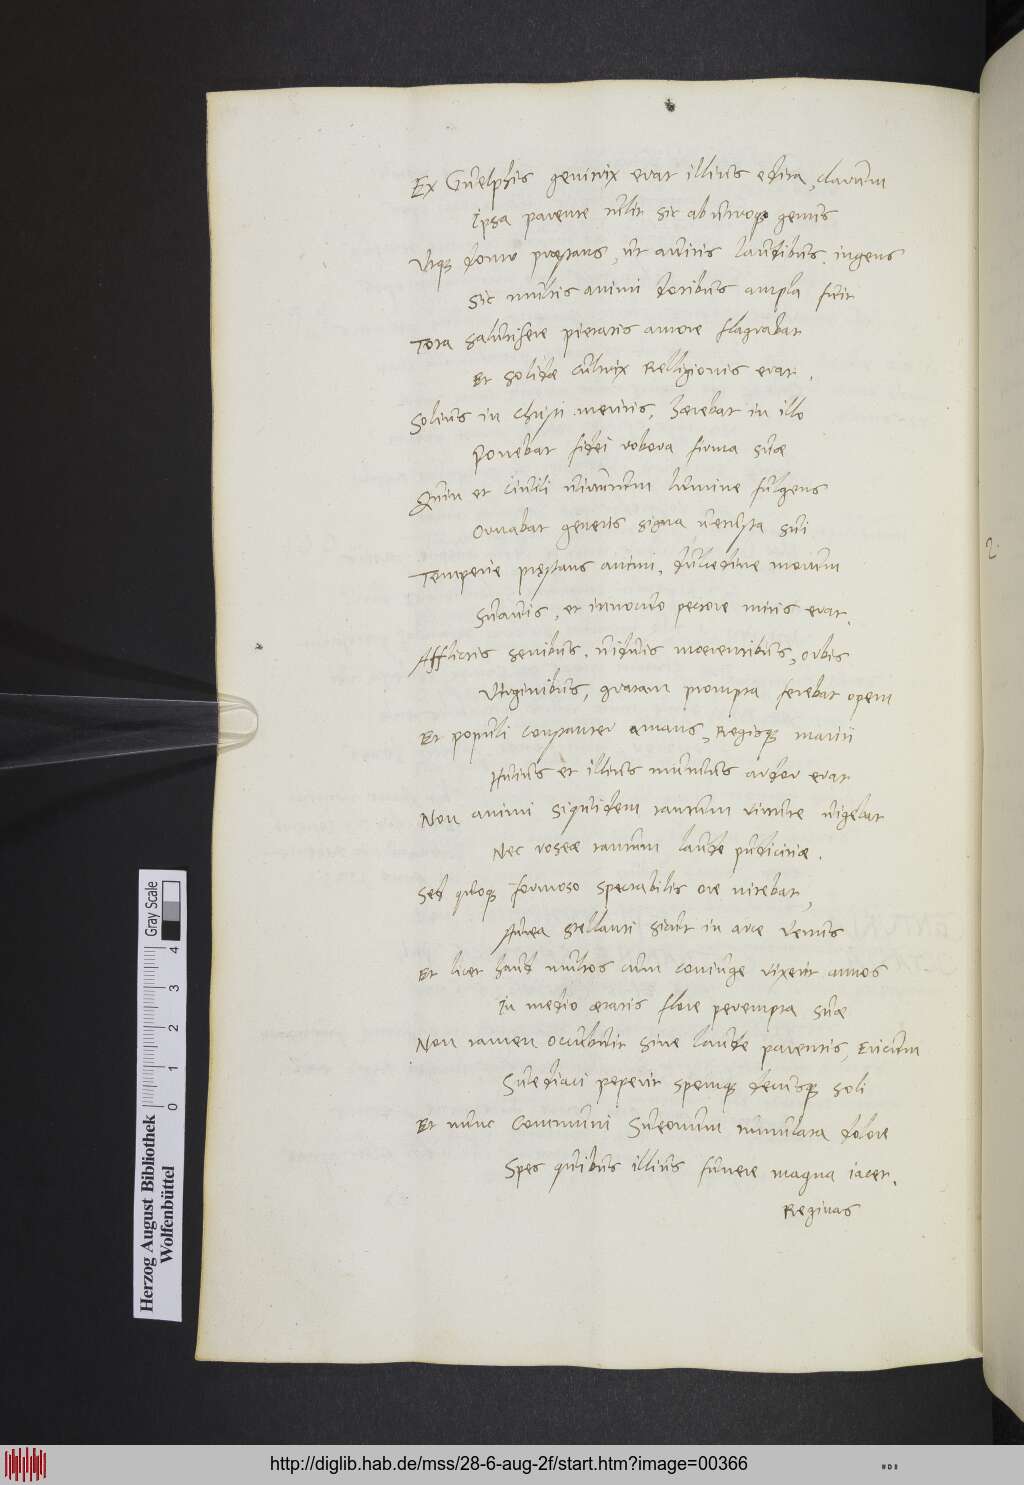 Ex Guelphis genitrix erat illius edita, clarum
Ipsa parente tulit sic ab utroque genus
Utque domo præstans, ut avitis laudibus ingens
Sic multis animi dotibus ampla fuit
Tota salutiferæ pietatis amore flagrabat
Et solidæ cultrix Relligionis erat.
Solius in Christi meritis, hærebat in illo
Ponebat fidei robora firma suæ
Quin et civili virtutum lumine fulgens
Ornabat generis signa vetusta sui
Temperie præstans animi, dulcedine morum
Suavis, et innocuo pectore mitis erat.
Afflictis senibus, viduis moerentibus, orbis
Virginibus, gratam prompta ferebat opem
Et populi constanter amans, Regisque mariti
Huius et illius mutuus ardor erat
Non animi siquidem tantum virtute vigebat
Nec roseæ tantum laude pudicitiæ.
Sed quoque formoso spectabilis ore nitebat,
Aurea stellanti sicut in arce Venus
Et licet haud multos cum coniuge vixerit annos
In medio ætatis flore perempta suæ
Non tamen occubuit sine laude parentis, Ericum
Suediaci peperit spemque decusque soli
Et nunc communi Sueonum tumulata dolore
Spes quibus illius funere magna iacet.
Reginas
2.
Herzog August Bibliothek
Wolfenbüttel
0 1 2 3 4
Gray Scale
http://diglib.hab.de/mss/28-6-aug-2f/start.htm?image=00366